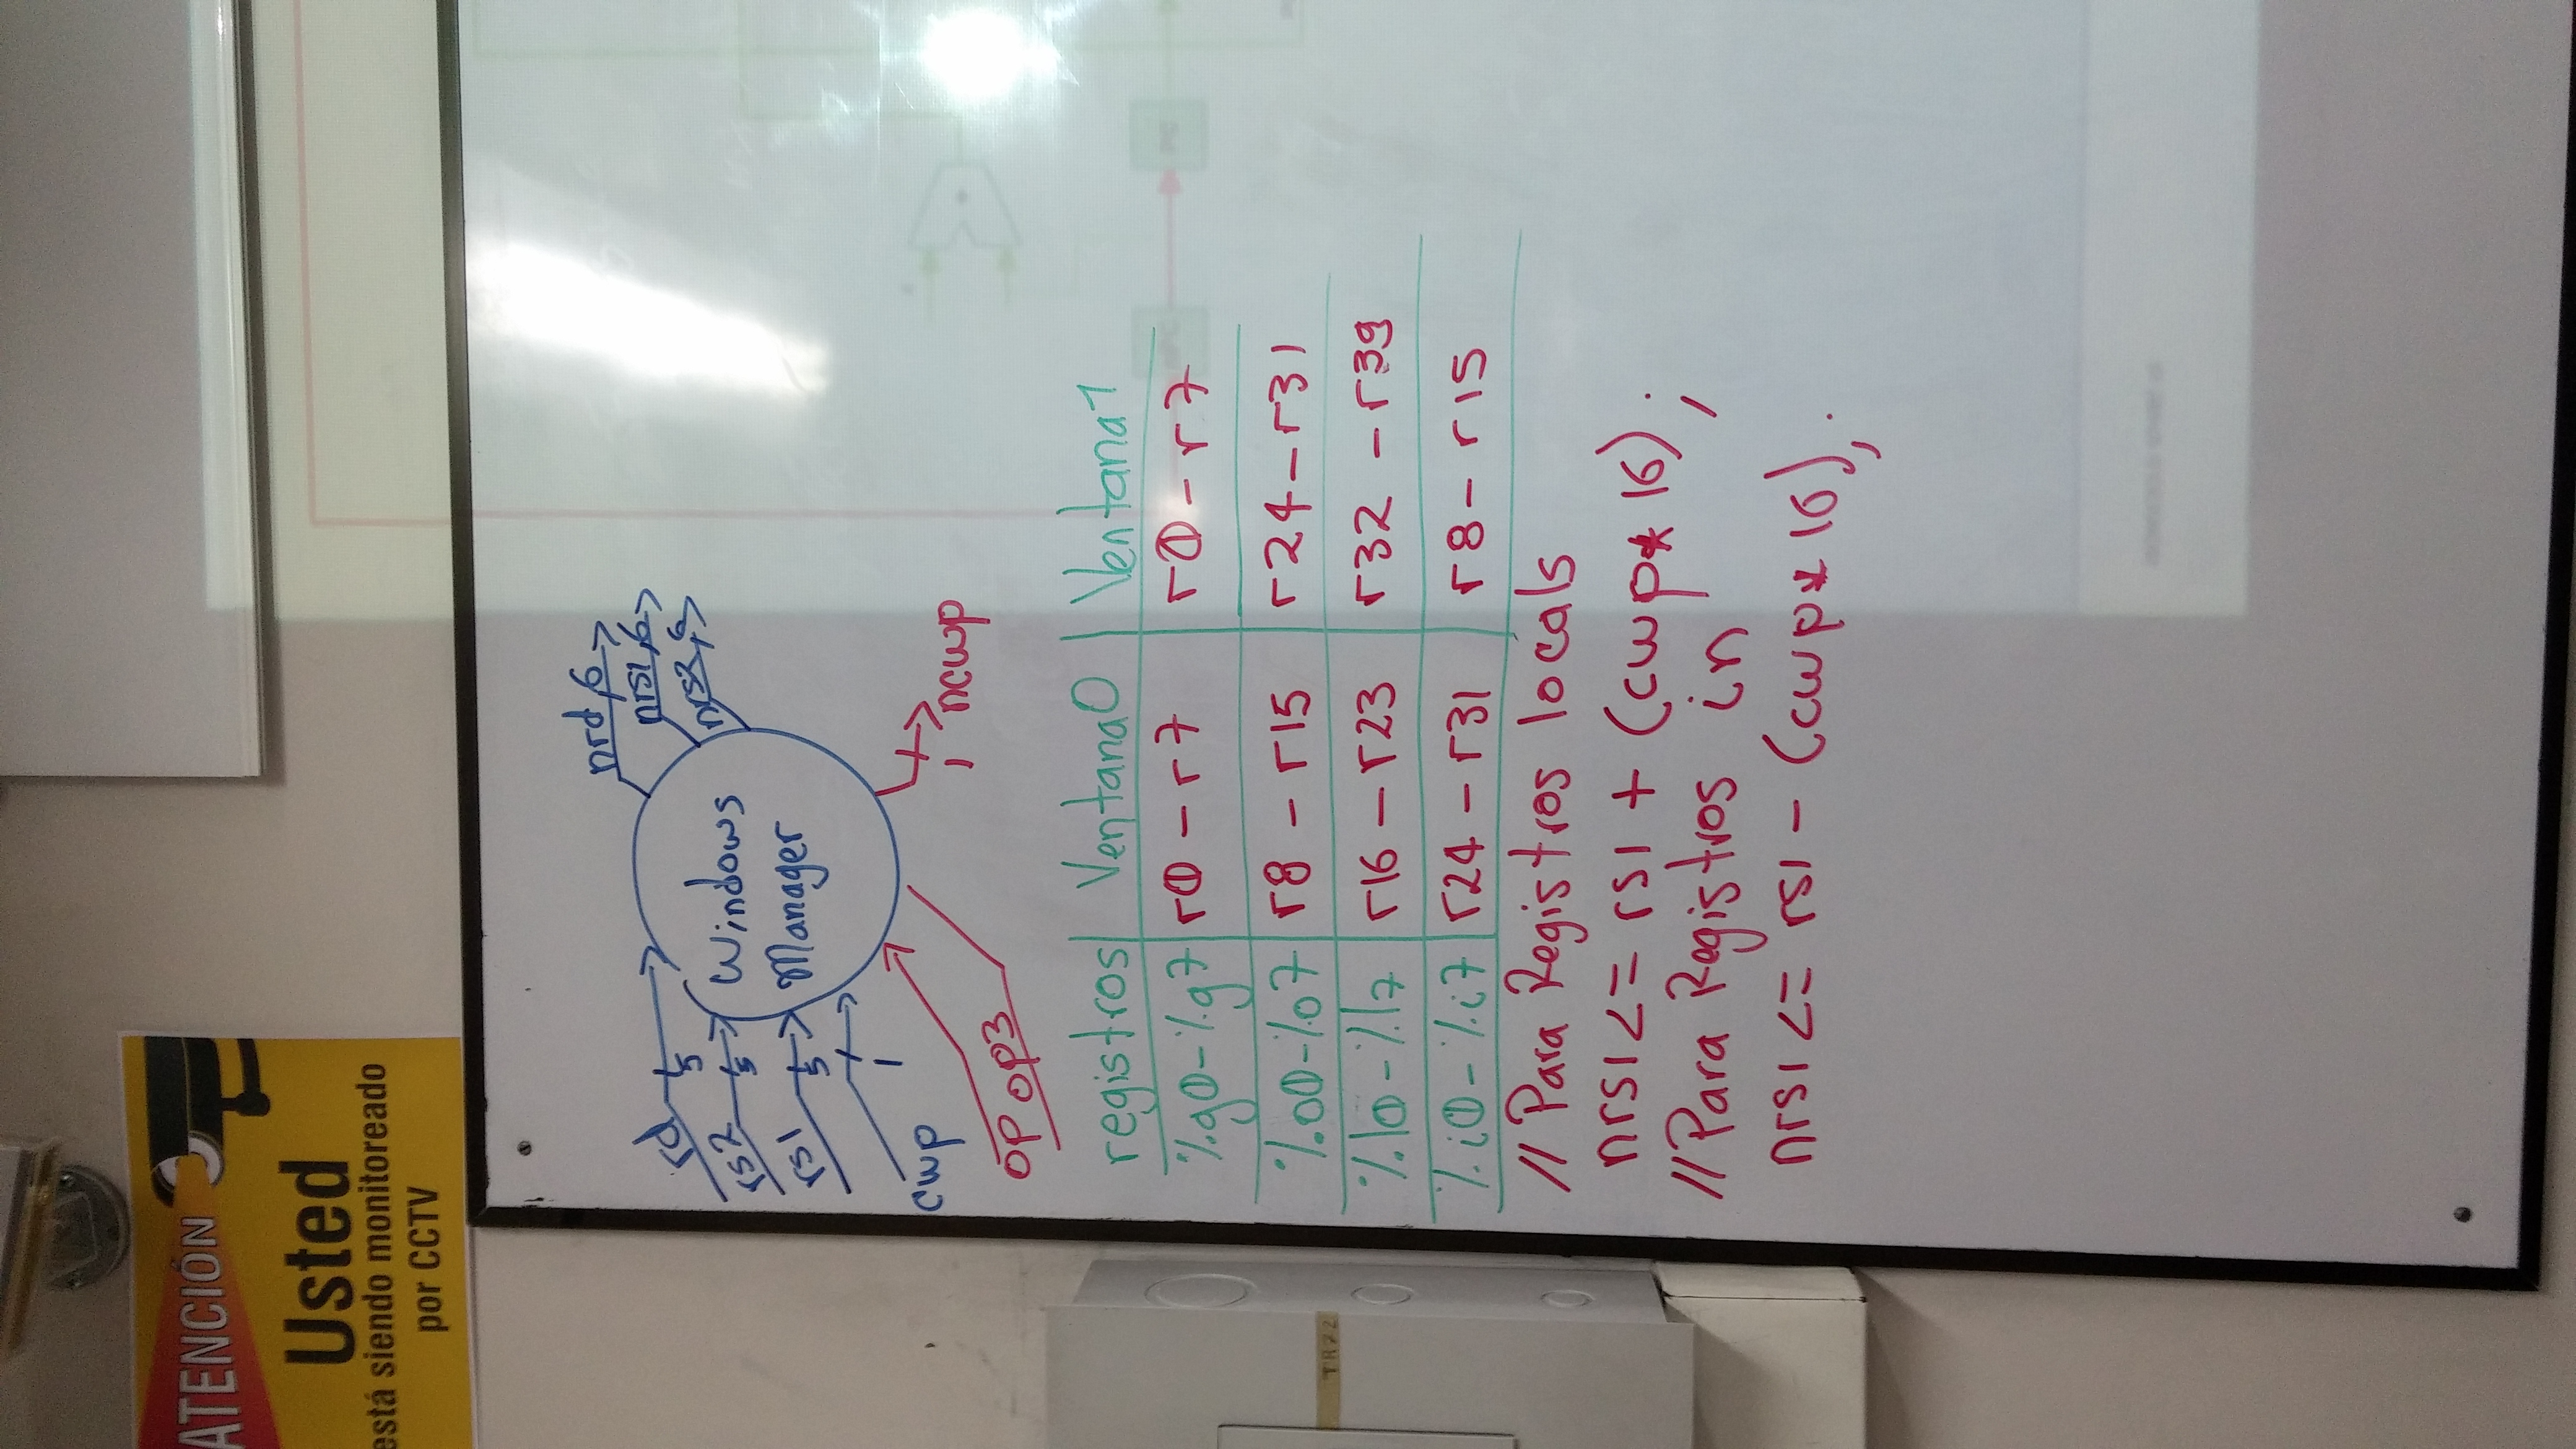 ATENCIÓN
Usted
está siendo monitoreado
por CCTV
nrd,6
nrs1,6
nrs2,6
rd
5
rs2
5
rs1
5
cwp
1
Windows
Manager
op op3
1 ncwp
registros Ventana0 Ventana1
%g0-%g7 r0 - r7 r0 - r7
%o0-%o7 r8 - r15 r24 - r31
%l0-%l7 r16 - r23 r32 - r39
%i0-%i7 r24 - r31 r8 - r15
// Para Registros locals
nrs1 <= rs1 + (cwp * 16);
// Para Registros in
nrs1 <= rs1 - (cwp * 16);
TR72
PC